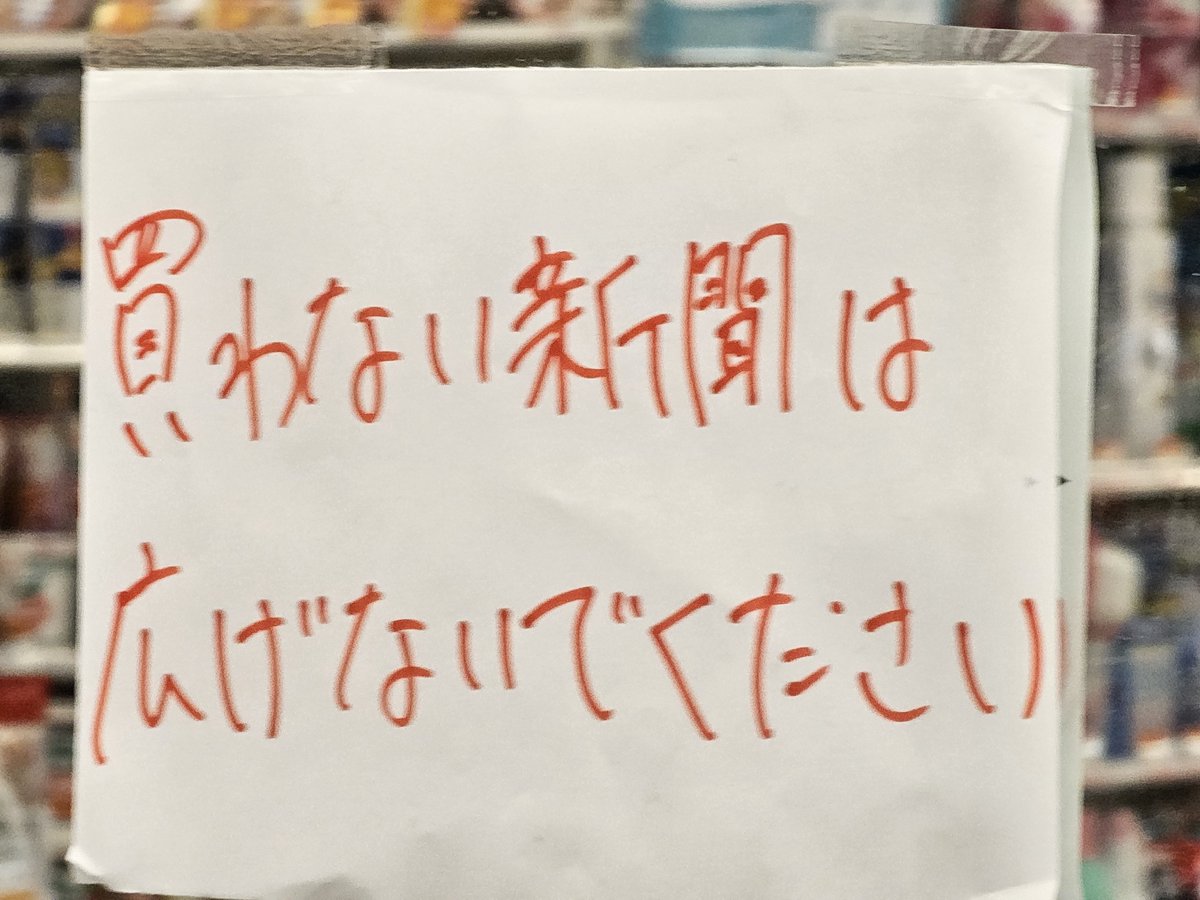 買わない新聞は
広げないでください